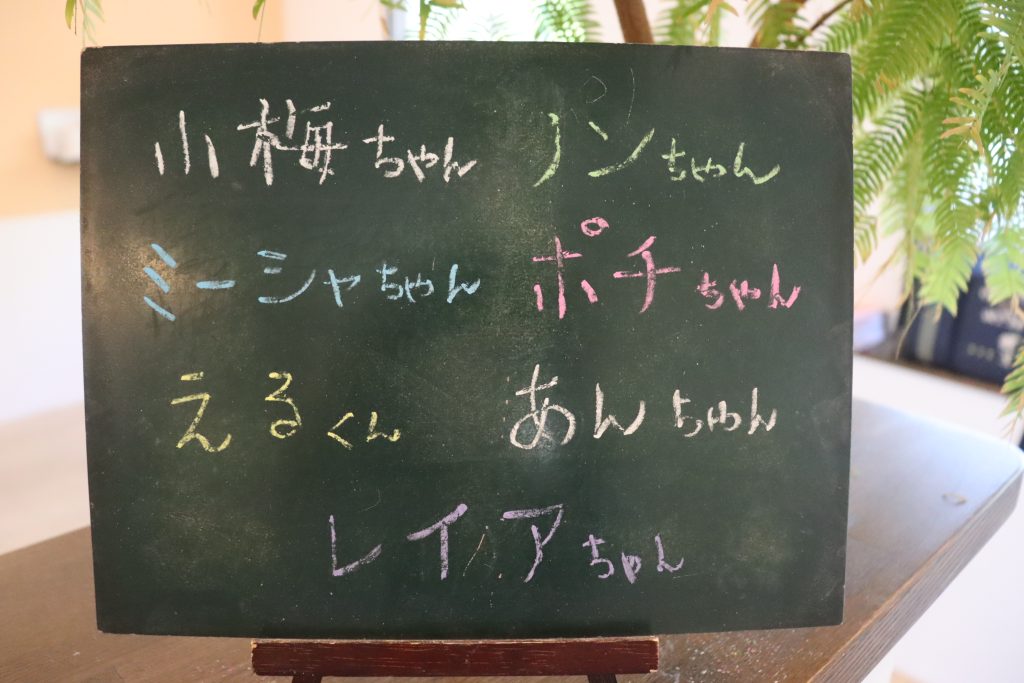 小梅ちゃん リンちゃん
ミーシャちゃん ポチちゃん
えるくん あんちゃん
レイアちゃん